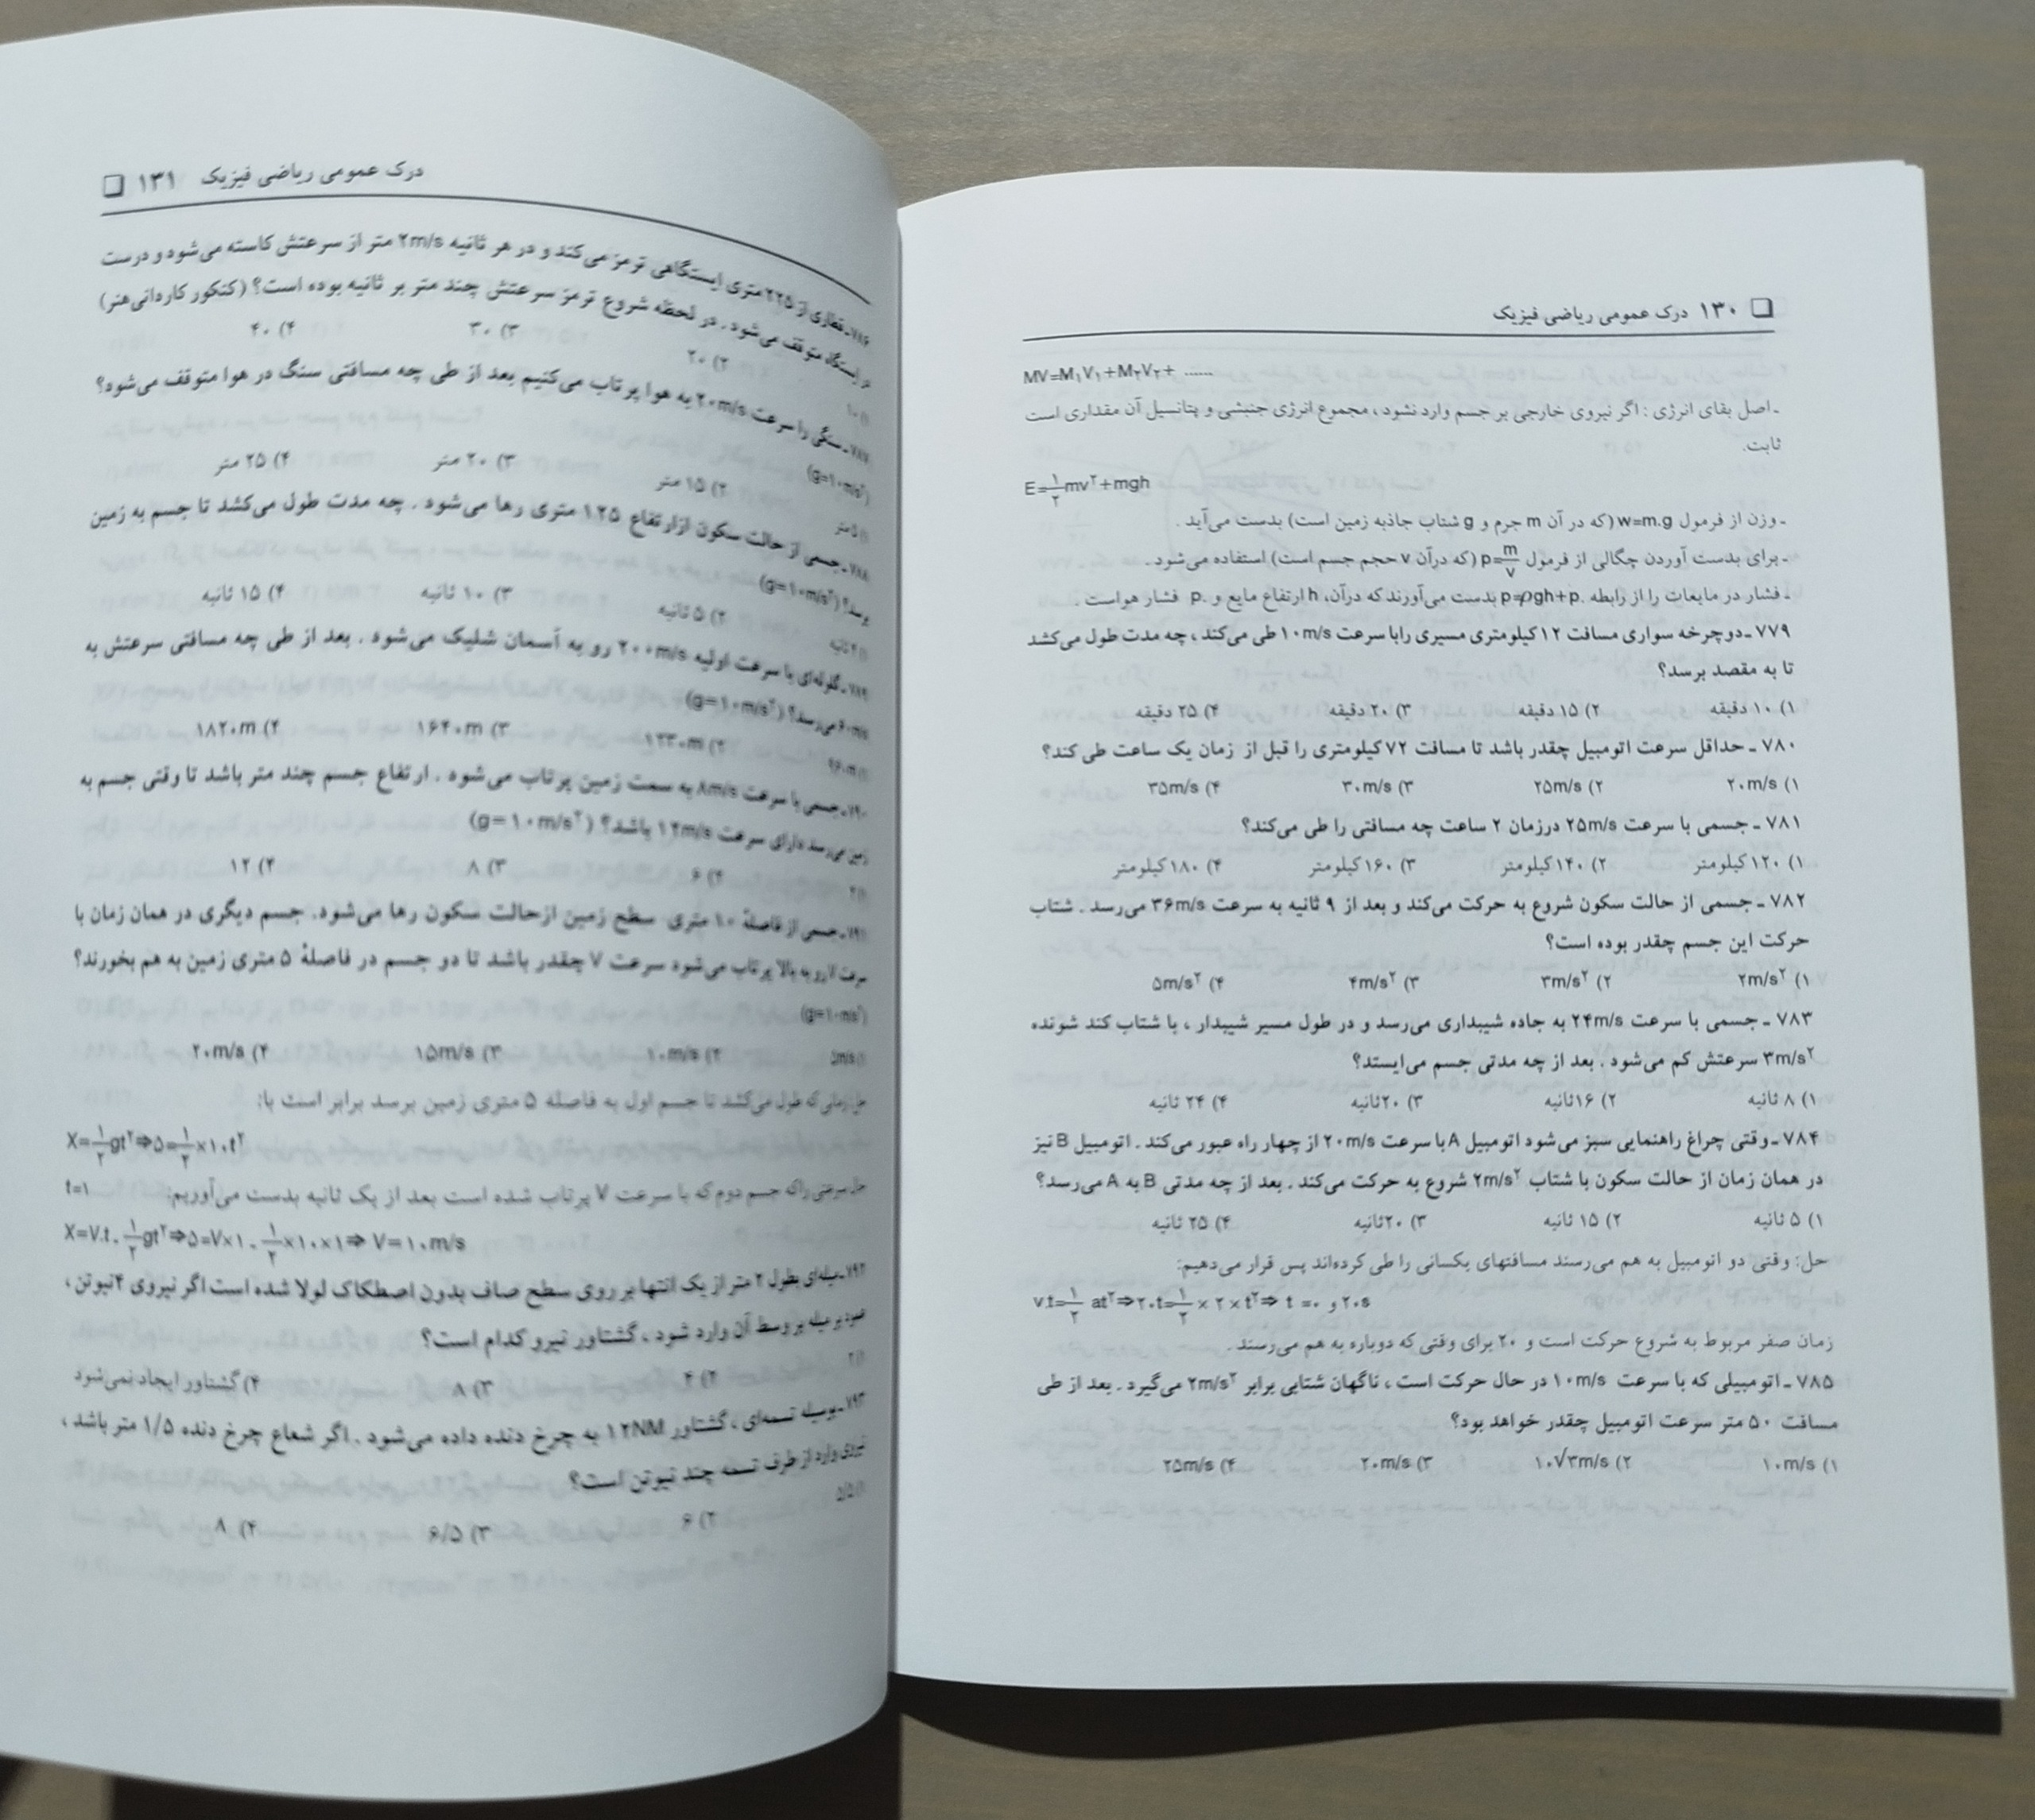 ❏ ۱۳۰ درک عمومی ریاضی فیزیک
MV=M۱V۱+M۲V۲+ ......
ـ اصل بقای انرژی : اگر نیروی خارجی بر جسم وارد نشود ، مجموع انرژی جنبشی و پتانسیل آن مقداری است
ثابت.
E=۱/۲mv²+mgh
ـ وزن از فرمول w=m.g (که در آن m جرم و g شتاب جاذبه زمین است) بدست می‌آید .
ـ برای بدست آوردن چگالی از فرمول p=m/v (که درآن v حجم جسم است) استفاده می‌شود .
ـ فشار در مایعات را از رابطه p=ρgh+p۰ بدست می‌آورند که درآن، h ارتفاع مایع و p۰ فشار هواست .
۷۷۹ ـ دوچرخه سواری مسافت ۱۲ کیلومتری مسیری رابا سرعت ۱۰m/s طی می‌کند ، چه مدت طول می‌کشد
تا به مقصد برسد؟
۱) ۱۰ دقیقه ۲) ۱۵ دقیقه ۳) ۲۰ دقیقه ۴) ۲۵ دقیقه
۷۸۰ ـ حداقل سرعت اتومبیل چقدر باشد تا مسافت ۷۲ کیلومتری را قبل از زمان یک ساعت طی کند؟
۱) ۲۰m/s ۲) ۲۵m/s ۳) ۳۰m/s ۴) ۳۵m/s
۷۸۱ ـ جسمی با سرعت ۲۵m/s درزمان ۲ ساعت چه مسافتی را طی می‌کند؟
۱) ۱۲۰ کیلومتر ۲) ۱۴۰ کیلومتر ۳) ۱۶۰ کیلومتر ۴) ۱۸۰ کیلومتر
۷۸۲ ـ جسمی از حالت سکون شروع به حرکت می‌کند و بعد از ۹ ثانیه به سرعت ۳۶m/s می‌رسد . شتاب
حرکت این جسم چقدر بوده است؟
۱) ۲m/s² ۲) ۳m/s² ۳) ۴m/s² ۴) ۵m/s²
۷۸۳ ـ جسمی با سرعت ۲۴m/s به جاده شیبداری می‌رسد و در طول مسیر شیبدار ، با شتاب کند شونده
۳m/s² سرعتش کم می‌شود . بعد از چه مدتی جسم می‌ایستد؟
۱) ۸ ثانیه ۲) ۱۶ ثانیه ۳) ۲۰ ثانیه ۴) ۲۴ ثانیه
۷۸۴ ـ وقتی چراغ راهنمایی سبز می‌شود اتومبیل A با سرعت ۲۰m/s از چهار راه عبور می‌کند . اتومبیل B نیز
در همان زمان از حالت سکون با شتاب ۲m/s² شروع به حرکت می‌کند . بعد از چه مدتی B به A می‌رسد؟
۱) ۵ ثانیه ۲) ۱۵ ثانیه ۳) ۲۰ ثانیه ۴) ۲۵ ثانیه
حل: وقتی دو اتومبیل به هم می‌رسند مسافتهای یکسانی را طی کرده‌اند پس قرار می‌دهیم:
v.t=۱/۲ at²⇒۲۰t=۱/۲ × ۲ × t²⇒ t =۰ و ۲۰s
زمان صفر مربوط به شروع حرکت است و ۲۰ برای وقتی که دوباره به هم می‌رسند .
۷۸۵ ـ اتومبیلی که با سرعت ۱۰m/s در حال حرکت است ، ناگهان شتابی برابر ۲m/s² می‌گیرد . بعد از طی
مسافت ۵۰ متر سرعت اتومبیل چقدر خواهد بود؟
۱) ۱۰m/s ۲) ۱۰√۳m/s ۳) ۲۰m/s ۴) ۲۵m/s
درک عمومی ریاضی فیزیک ۱۳۱ ❏
۷۸۶ـ قطاری از ۲۲۵ متری ایستگاهی ترمز می‌کند و در هر ثانیه ۲m/s متر از سرعتش کاسته می‌شود و درست
ایستگاه متوقف می‌شود . در لحظه شروع ترمز سرعتش چند متر بر ثانیه بوده است؟ (کنکور کاردانی هنر)
۱) ۱۰ ۲) ۲۰ ۳) ۳۰ ۴) ۴۰
۷۸۷ـ سنگی را سرعت ۲۰m/s به هوا پرتاب می‌کنیم بعد از طی چه مسافتی سنگ در هوا متوقف می‌شود؟
(g=۱۰m/s²)
۱) ۵ متر ۲) ۱۵ متر ۳) ۲۰ متر ۴) ۲۵ متر
۷۸۸ـ جسمی از حالت سکون ازارتفاع ۱۲۵ متری رها می‌شود . چه مدت طول می‌کشد تا جسم به زمین
برسد؟ (g=۱۰m/s²)
۲) ۵ ثانیه ۳) ۱۰ ثانیه ۴) ۱۵ ثانیه
۷۸۹ـ گلوله‌ای با سرعت اولیه ۲۰۰m/s رو به آسمان شلیک می‌شود . بعد از طی چه مسافتی سرعتش به
۶۰m/s می‌رسد؟ (g=۱۰m/s²)
۲) ۱۲۳۰m ۳) ۱۶۴۰m ۴) ۱۸۲۰m
۷۹۰ـ جسمی با سرعت ۸m/s به سمت زمین پرتاب می‌شود . ارتفاع جسم چند متر باشد تا وقتی جسم به
زمین می‌رسد دارای سرعت ۱۲m/s باشد؟ (g=۱۰m/s²)
۲) ۶ ۳) ۸ ۴) ۱۲
۷۹۱ـ جسمی از فاصلهٔ ۱۰ متری سطح زمین ازحالت سکون رها می‌شود. جسم دیگری در همان زمان با
سرعت V رو به بالا پرتاب می‌شود سرعت V چقدر باشد تا دو جسم در فاصلهٔ ۵ متری زمین به هم بخورند؟
(g=۱۰m/s²)
۱) ۵m/s ۲) ۱۰m/s ۳) ۱۵m/s ۴) ۲۰m/s
حل: زمانی که طول می‌کشد تا جسم اول به فاصله ۵ متری زمین برسد برابر است با:
X=۱/۲gt²⇒۵=۱/۲×۱۰t²
حل سرعتی راکه جسم دوم که با سرعت V پرتاب شده است بعد از یک ثانیه بدست می‌آوریم: t=۱
X=V.t - ۱/۲gt²⇒۵=V×۱ - ۱/۲×۱۰×۱⇒ V=۱۰m/s
۷۹۲ـ میله‌ای بطول ۲ متر از یک انتها بر روی سطح صاف بدون اصطکاک لولا شده است اگر نیروی ۴ نیوتن ،
عمود بر میله بر وسط آن وارد شود ، گشتاور نیرو کدام است؟
۱) ۲ ۲) ۴ ۳) ۸ ۴) گشتاور ایجاد نمی‌شود
۷۹۳ـ بوسیله تسمه‌ای ، گشتاور ۱۲NM به چرخ دنده داده می‌شود . اگر شعاع چرخ دنده ۱/۵ متر باشد ،
نیروی وارد از طرف تسمه چند نیوتن است؟
۱) ۵/۵ ۲) ۶ ۳) ۶/۵ ۴) ۸